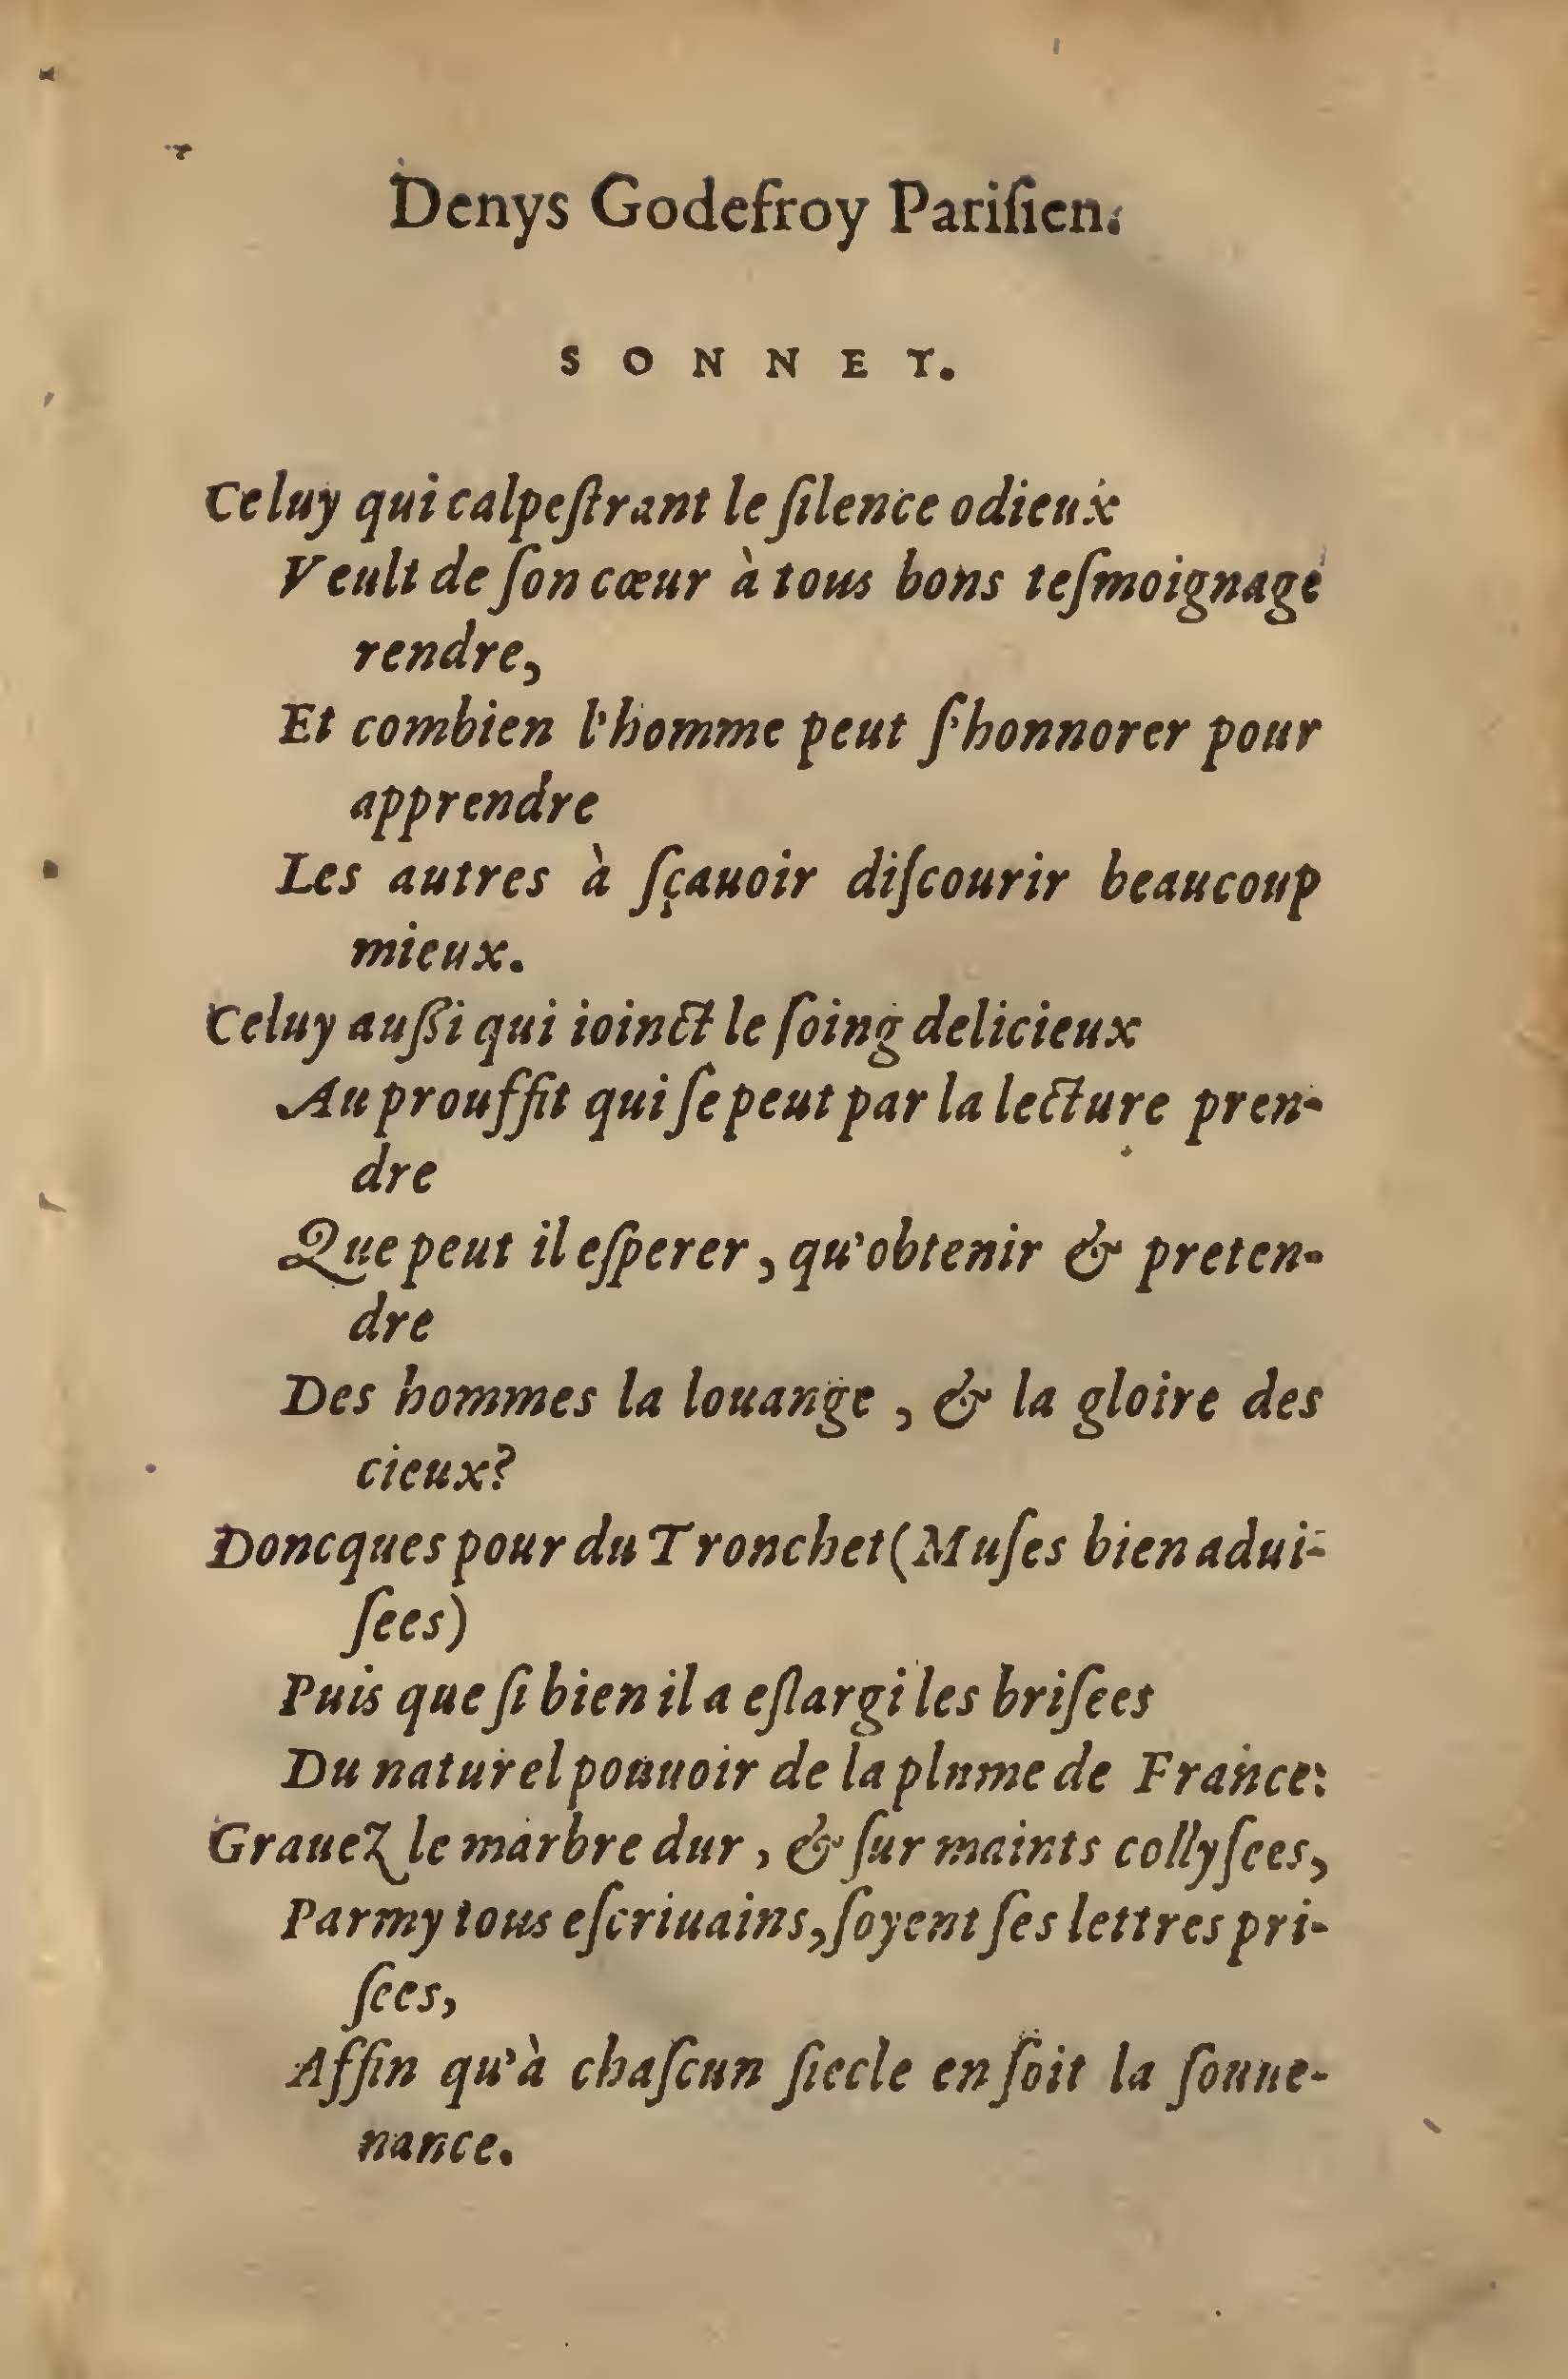 Denys Godefroy Pariſien.
SONNET.
Celuy qui calpeſtrant le ſilence odieux
Veult de ſon cœur à tous bons teſmoignage
rendre,
Et combien l'homme peut ſ'honnorer pour
apprendre
Les autres à ſçauoir diſcourir beaucoup
mieux.
Celuy außi qui ioinct le ſoing delicieux
Au prouffit qui ſe peut par la lecture pren-
dre
Que peut il eſperer, qu'obtenir & preten-
dre
Des hommes la louange, & la gloire des
cieux?
Doncques pour du Tronchet (Muſes bien adui-
ſees)
Puis que ſi bien il a eſlargi les briſees
Du naturel pouuoir de la plume de France:
Grauez le marbre dur, & ſur maints collyſees,
Parmy tous eſcriuains, ſoyent ſes lettres pri-
ſees,
Affin qu'à chaſcun ſiecle en ſoit la ſouue-
nance.